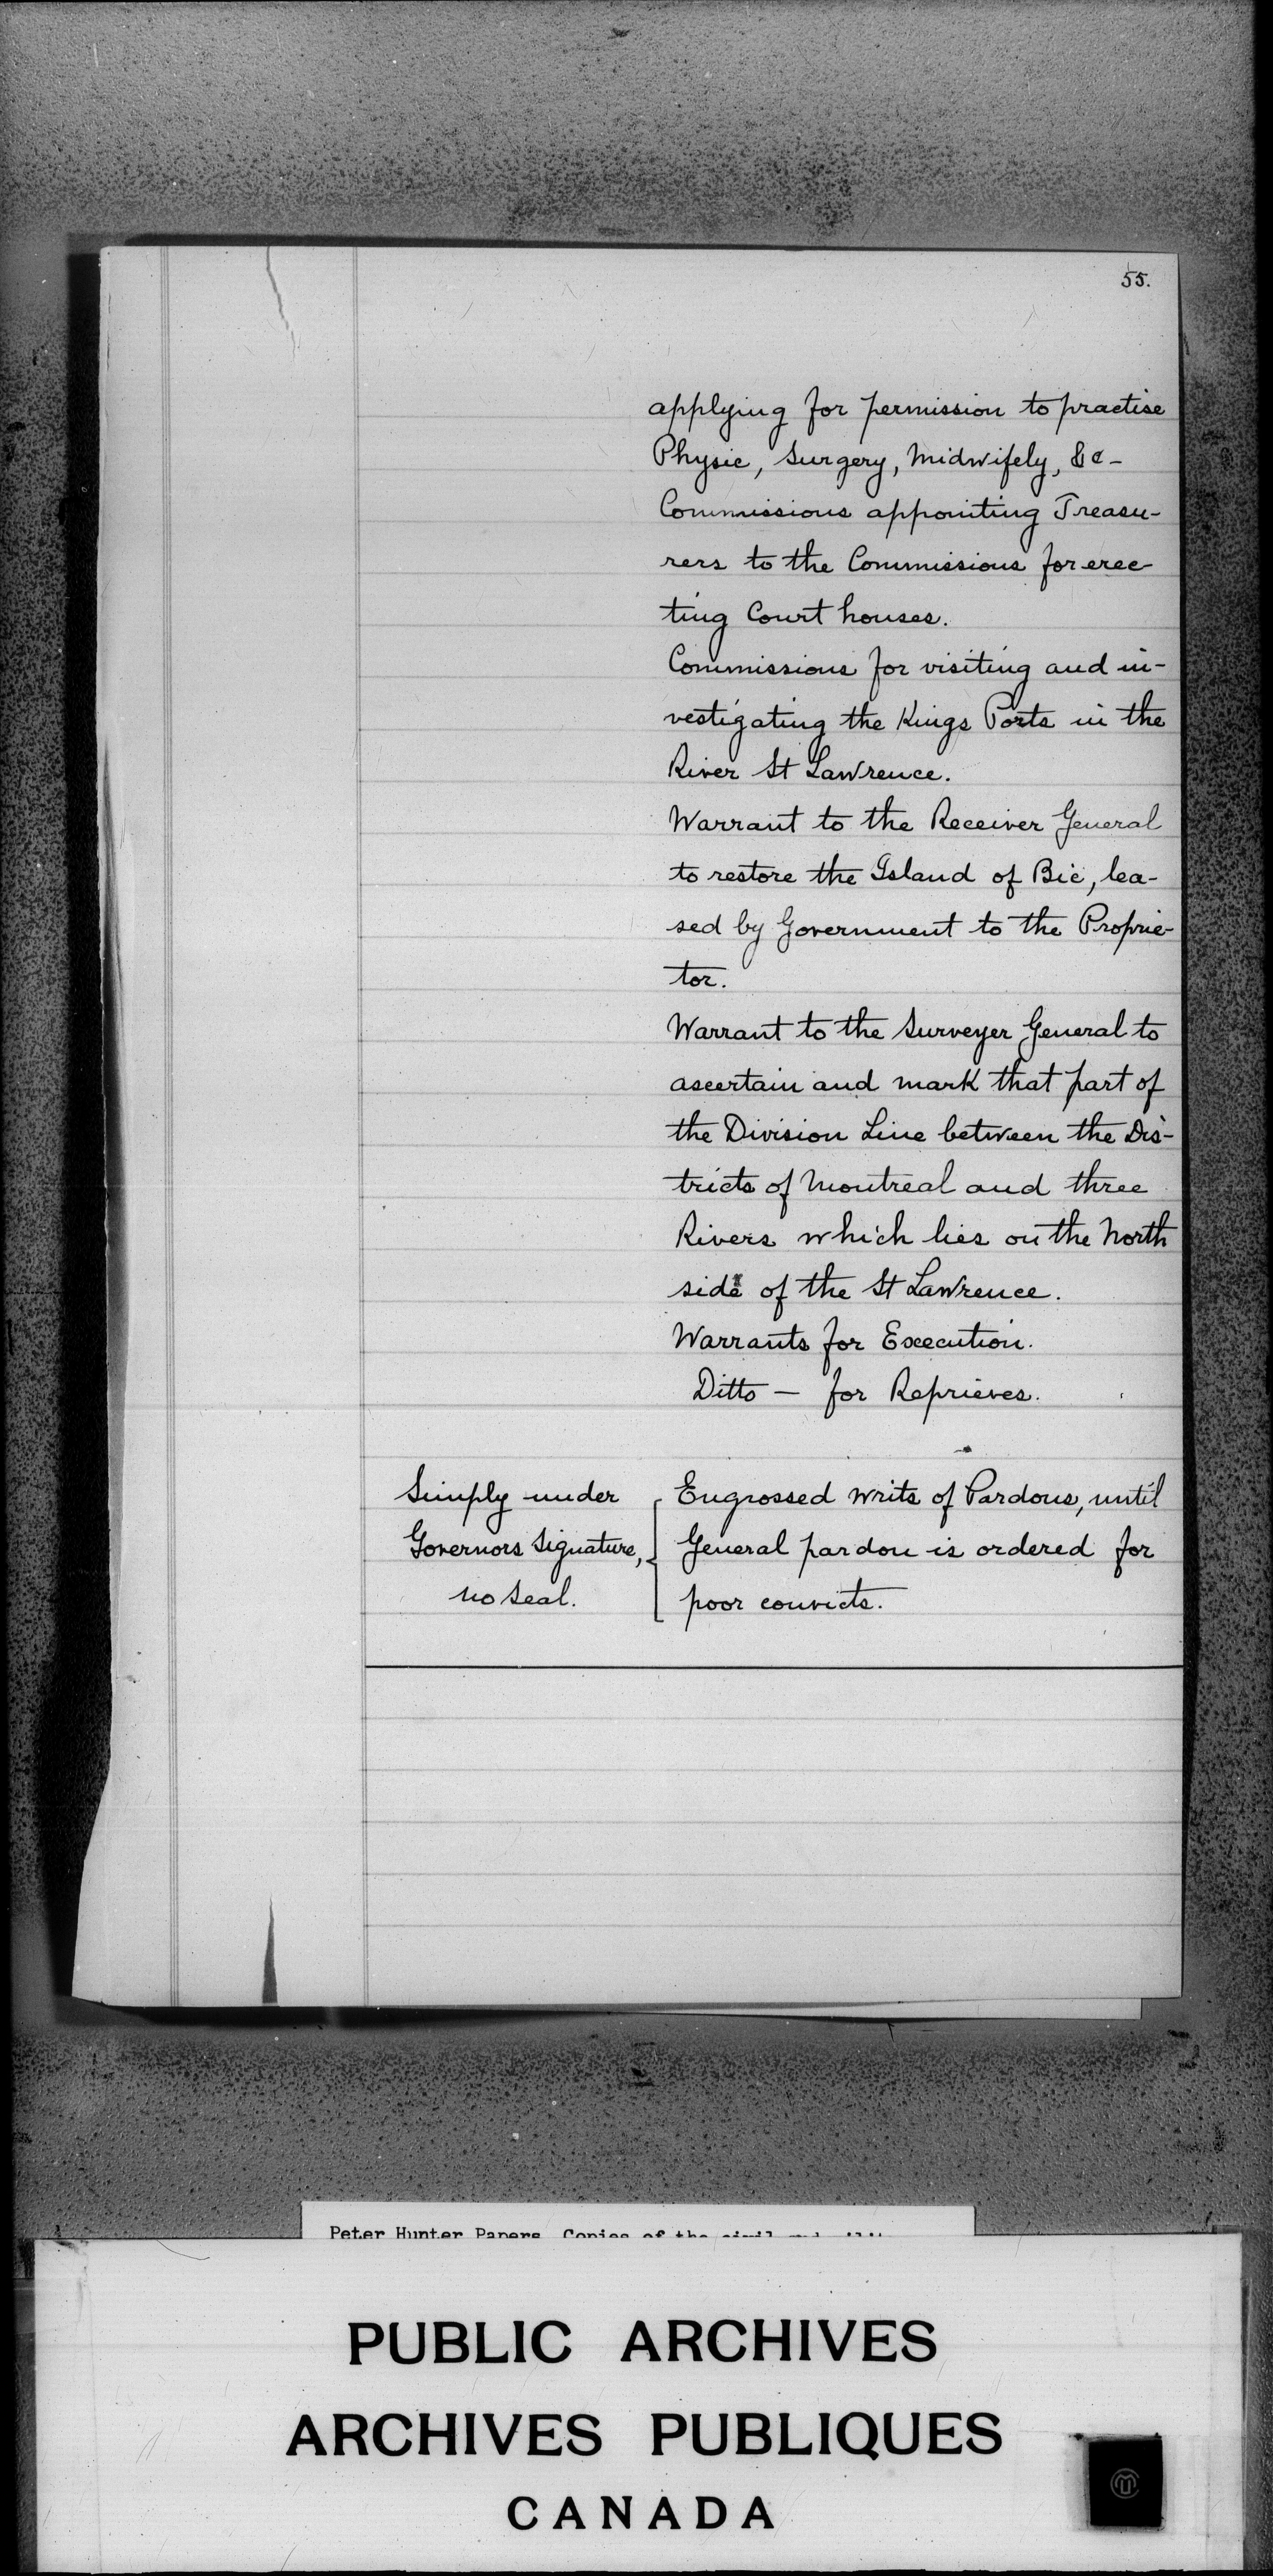 55.
applying for permission to practise
Physic, Surgery, Midwifely, &c-
Commissions appointing Treasu-
rers to the Commissions for erec-
ting Court houses.
Commissions for visiting and in-
vestigating the Kings Ports in the
River St Lawrence.
Warrant to the Receiver General
to restore the Island of Bic, lea-
sed by Government to the Proprie-
tor.
Warrant to the Surveyer General to
ascertain and mark that part of
the Division Line between the Dis-
tricts of Montreal and three
Rivers which lies on the North
side of the St Lawrence.
Warrants for Execution.
Ditto — for Reprieves.
Simply under
Governors Signature,
no Seal.
Engrossed writs of Pardons, until
General pardon is ordered for
poor convicts.
Peter Hunter Papers. Copies of the civil
PUBLIC ARCHIVES
ARCHIVES PUBLIQUES
CANADA